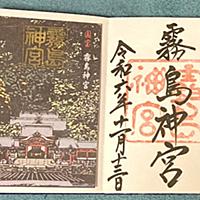 霧島神宮
令和六年十一月十三日
霧島神宮
国宝 霧島神宮
霧島
神宮